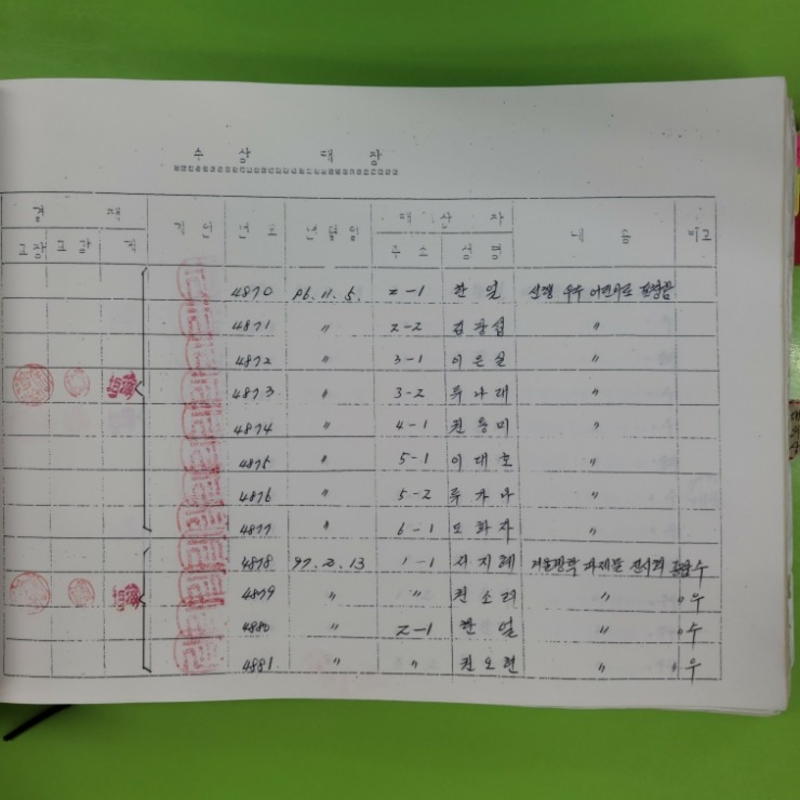 수 상 대 장
결 재 직인 번호 년월일 대 상 자 내 용 비고
교장 교감 계 주 소 성 명
4870 96. 11. 5. 2-1 한 일 선행 우수 어린이로 표창함
4871 〃 2-2 김광섭 〃
4872 〃 3-1 이은실 〃
4873 〃 3-2 루나래 〃
4874 〃 4-1 권용미 〃
4875 〃 5-1 이대호 〃
4876 〃 5-2 루가나 〃
4877 〃 6-1 도화자 〃
4878 97. 2. 13 1-1 사지혜 겨울방학 과제물 전시회 수
4879 〃 〃 권소리 〃 〃 우
4880 〃 2-1 한 얼 〃 〃 수
4881 〃 〃 권오련 〃 〃 우